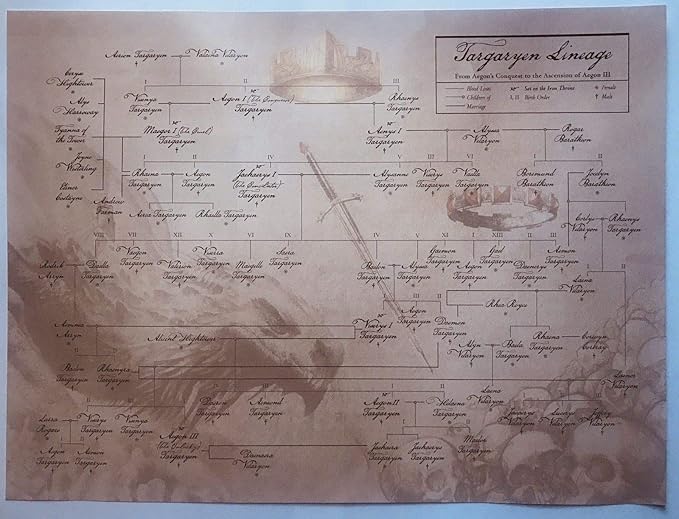 Targaryen Lineage
From Aegon's Conquest to the Ascension of Aegon III
Blood Lines
Sat on the Iron Throne
Female
Children of
I, II Birth Order
Male
Marriage
Targaryen
Valaena Velaryon
Ceryse
Hightower
Alys
Harroway
Tyanna of
the Tower
Elinor
Costayne
I
II
III
Visenya
Targaryen
Aegon I (the Conqueror)
Targaryen
Rhaenys
Targaryen
Maegor I (the Cruel)
Targaryen
Aenys I
Targaryen
Alyssa
Velaryon
Rogar
Baratheon
I
II
IV
V
III
VI
I
II
Rhaena
Targaryen
Aegon
Targaryen
Jaehaerys I
(the Conciliator)
Targaryen
Alysanne
Targaryen
Viserys
Targaryen
Vaella
Targaryen
Boremund
Baratheon
Jocelyn
Baratheon
Andrew
Farman
Aerea Targaryen
Rhaella Targaryen
Corlys
Velaryon
Rhaenys
Targaryen
VIII
VII
XII
X
VI
IX
IV
V
XI
I
XIII
II
III
Rodrik
Arryn
Daella
Targaryen
Vaegon
Targaryen
Valerion
Targaryen
Viserra
Targaryen
Maegelle
Targaryen
Saera
Targaryen
Baelon
Targaryen
Alyssa
Targaryen
Gaemon
Targaryen
Aegon
Targaryen
Gael
Targaryen
Daenerys
Targaryen
Aemon
Targaryen
Laena
Velaryon
III
II
Aegon
Targaryen
Rhea Royce
Aemma
Arryn
Alicent Hightower
Viserys I
Targaryen
Daemon
Targaryen
Alyn
Velaryon
Baela
Targaryen
Rhaena
Targaryen
Corwyn
Corbray
Baelon
Targaryen
Rhaenyra
Targaryen
Laenor
Velaryon
Daeron
Targaryen
Aemond
Targaryen
Aegon II
Targaryen
Helaena
Targaryen
Velaryon
Velaryon
Velaryon
Velaryon
Larra
Rogare
Viserys
Targaryen
Visenya
Targaryen
Aegon III
Targaryen
Daenaera
Velaryon
Aegon
Targaryen
Aemon
Targaryen
Jaehaera
Targaryen
Jaehaerys
Targaryen
Maelor
Targaryen